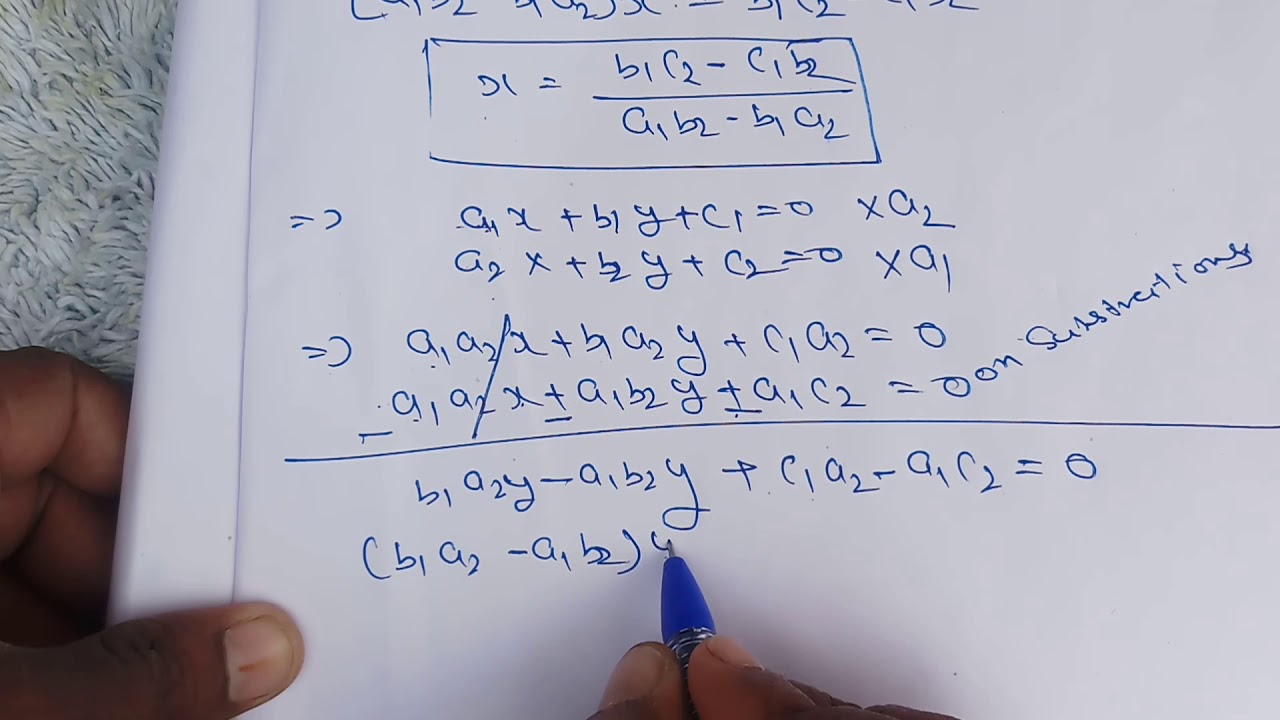 x = b₁c₂ - c₁b₂ / a₁b₂ - b₁a₂
=> a₁x + b₁y + c₁ = 0 × a₂
a₂x + b₂y + c₂ = 0 × a₁
=> a₁a₂x + b₁a₂y + c₁a₂ = 0
- a₁a₂x ± a₁b₂y ± a₁c₂ = 0 on substractions
b₁a₂y - a₁b₂y + c₁a₂ - a₁c₂ = 0
(b₁a₂ - a₁b₂) y